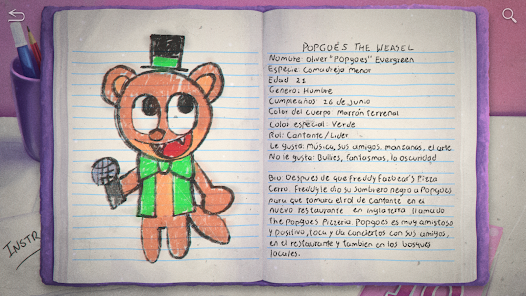 POPGOES THE WEASEL
Nombre: Oliver "Popgoes" Evergreen
Especie: Comadreja menor
Edad: 21
Genero: Hombre
Cumpleaños: 16 de junio
Color del cuerpo: Marrón terrenal
Color especial: Verde
Rol: Cantante/Lider
Le gusta: Música, sus amigos, manzanas, el arte
No le gusta: Bullies, fantasmas, la oscuridad
Bio: Despues de que Freddy Fazbear's Pizza
Cerro, Freddy le dio su sombrero negro a Popgoes
para que tomara el rol de cantante en el
nuevo restaurante en inglaterra llamado
The Popgoes Pizzeria. Popgoes es muy amistoso
y positivo, toca y da conciertos con sus amigos,
en el restaurante y tambien en los bosques
locales.
INSTR